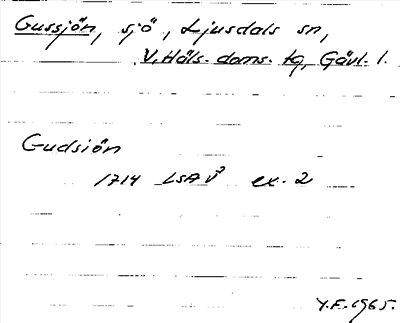 Gussjön, sjö, Ljusdals sn,
V. Häls. doms. tg, Gävl. l.
Gudsiön
1714 LSA V² ex. 2
Y.F. 1965.